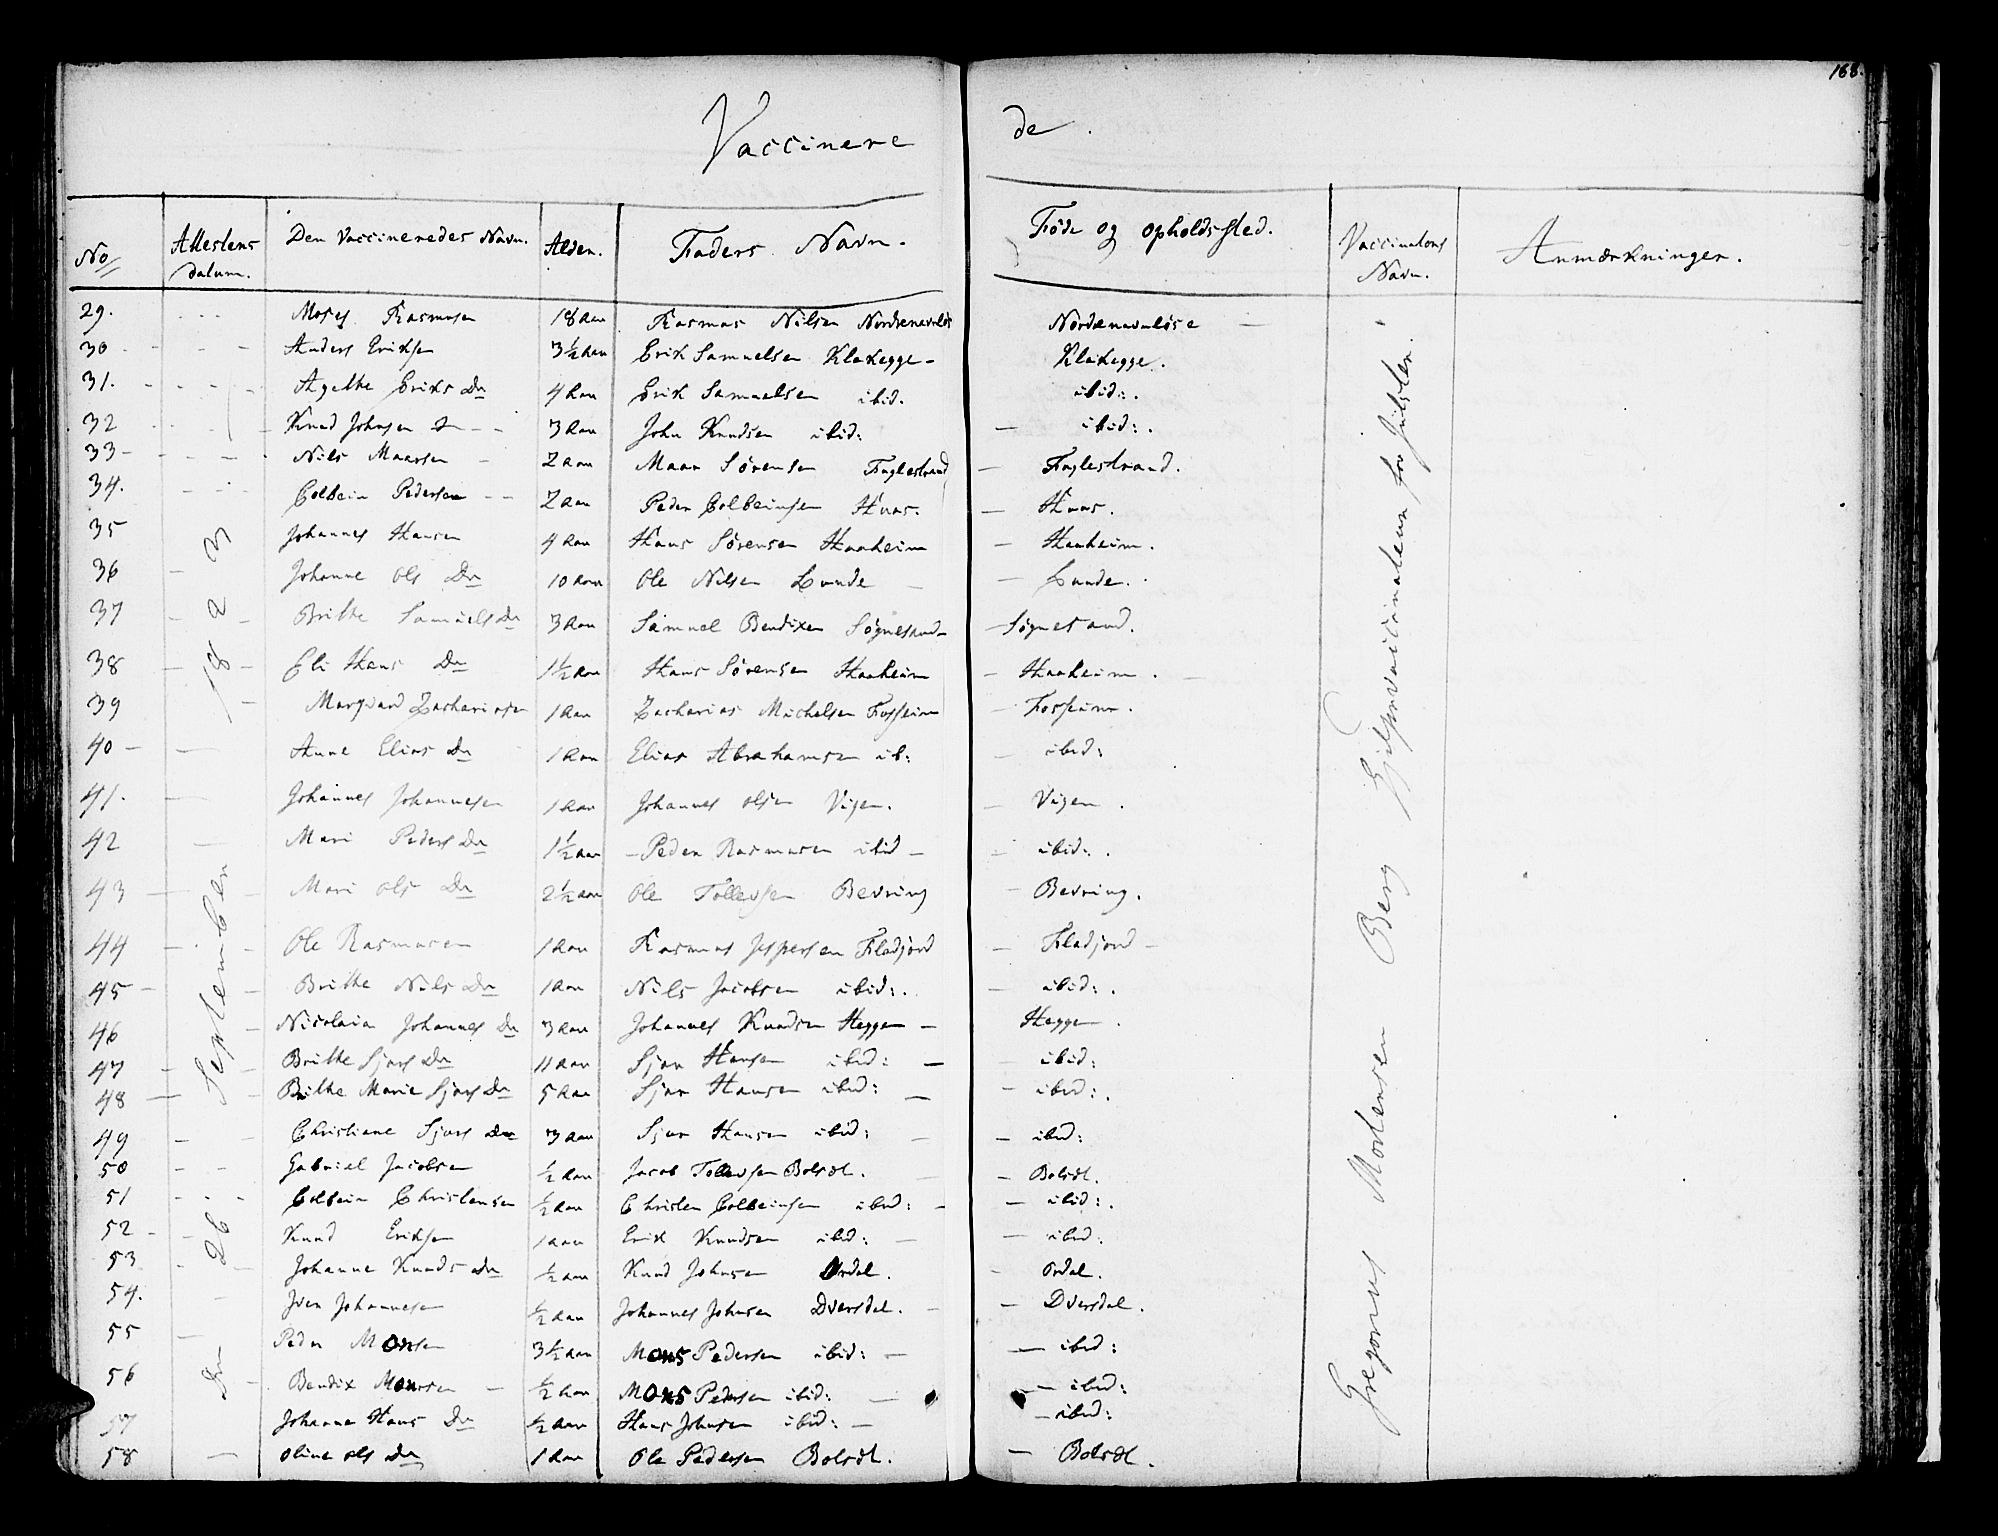 168.
Vaccinere de.
No Attestens datum. Den Vaccineredes Navn. Alder. Faders Navn. Føde og opholdssted. Vaccinators Navn. Anmærkninger.
29. Moses Rasmusen 18 Aar Rasmus Nilsen Nordrenavnløs Nordrenavnløse
30 Anders Eriksen 3½ Aar Erik Samuelsen Klakegge - Klakegge.
31. Agethe Eriks Dr 4 Aar Erik Samuelsen ibid. ibid:.
32 Knud Johnsen 3 Aar John Knudsen ibid: - ibid:.
33 - Nils Maarsen 2 Aar Maar Sørensen Fuglestrand - Fuglestrand.
34. Colbein Pedersen 2 Aar Peder Colbeinsen Huus. - Huus.
35 Johannes Hansen 4 Aar Hans Sørensen Haaheim - Haaheim.
36 Johanne Ols Dr 10 Aar Ole Nilsen Lunde - Lunde.
37 Brithe Samuels Dr 3 Aar Samuel Bendixen Søgnesand - Søgnesand.
38 Eli Hans Dr 1½ Aar Hans Sørensen Haaheim - Haaheim.
39 Marqvard Zachariasen 1 Aar Zacharias Michelsen Fossheim - Fossheim.
40 - Anne Elias Dr 1 Aar Elias Abrahamsen ib: - ibid:
41. Johannes Johannesen 1 Aar Johannes Olsen Vigen. - Vigen.
42 Mari Peders Dr 1½ Aar - Peder Rasmusen ibid - ibid:.
43 Mari Ols Dr 2½ Aar Ole Tollevsen Bevring - Bevring.
44 Ole Rasmusen 1 Aar Rasmus Jespersen Fladjord - Fladjord -
45 - Brithe Nils Dr 1 Aar Nils Jacobsen ibid:. - ibid:.
46 Nicolaia Johannes Dr 3 Aar Johannes Knudsen Heggen - Heggen.
47 Brithe Sjurs Dr 11 Aar Sjur Hansen ibid: - ibid:
48 Brithe Marie Sjurs Dr 5 Aar Sjur Hansen ibid: - ibid:.
49 Christiane Sjurs Dr 3 Aar Sjur Hansen ibid: - ibid:
50 Gabriel Jacobsen ½ Aar Jacob Tollevsen Bolsæt. - Bolsæt.
51 Colbein Christensen ½ Aar Christen Colbeinsen ibid: - ibid:.
52 - Knud Eriksen 1 Aar Erik Knudsen ibid: - ibid:
53 Johanne Knuds Dr ½ Aar Knud Johnsen Ordal. - Ordal.
54. Iver Johannesen ½ Aar Johannes Johnsen Dversdal. - Dversdal.
55 Peder Monsen 3½ Aar Mons Pedersen ibid: - ibid:
56 Bendix Monsen ½ Aar Mons Pedersen ibid: - ibid:
57 Johanna Hans Dr ½ Aar Hans Johnsen ibid: - ibid:
58 Oline Ols Dr 1 Aar Ole Pedersen Bolsæt. - Bolsæt.
Dn 26 September 1823
Gregorius Mortensen Berg Hjelpevaccinateur for Jølster.